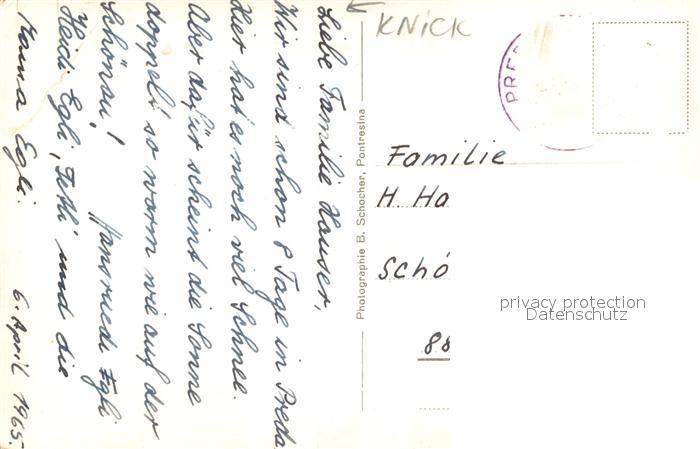 Liebe Familie Hauser,
Wir sind schon 8 Tage in Preda
Hier hat es noch viel Schnee.
Aber dafür scheint die Sonne
doppelt so warm wie auf der
Schönau! Hansruedi Egli
Heidi Egli, Fethi und die
Mama Egli.
6. April 1965.
Photographie B. Schocher, Pontresina
KNICK
PRED
Familie
H. Ha
Schö
88
privacy protection
Datenschutz